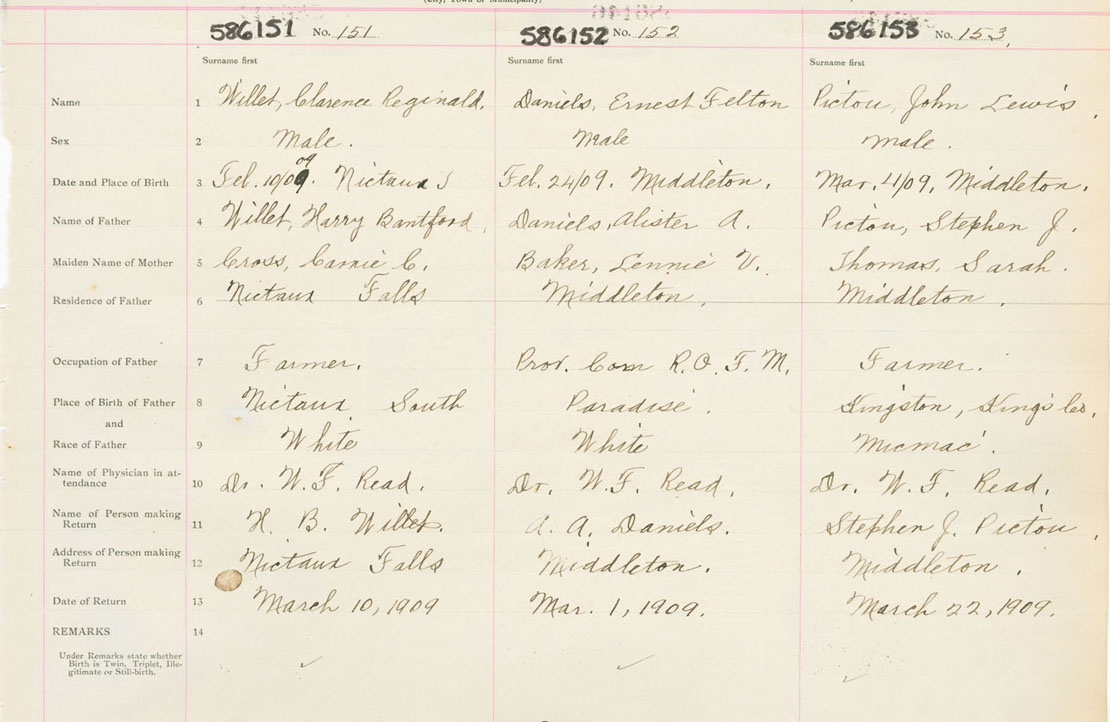 (City, Town or Municipality)
586151 No. 151 586152 No. 152 586153 No. 153.
Surname first Surname first Surname first
Name 1 Willet, Clarence Reginald. Daniels, Ernest Felton Pictou, John Lewis.
Sex 2 Male. Male Male.
Date and Place of Birth 3 Feb. 10/09. 09 Nictaux S Feb. 24/09. Middleton. Mar. 4/09, Middleton.
Name of Father 4 Willet, Harry Bantford, Daniels, Alister A. Pictou, Stephen J.
Maiden Name of Mother 5 Cross, Carrie C. Baker, Lennie V. Thomas, Sarah.
Residence of Father 6 Nictaux Falls Middleton. Middleton.
Occupation of Father 7 Farmer. Prov. Com R.O.F.M. Farmer.
Place of Birth of Father 8 Nictaux South Paradise. Kingston, Kings Co.
and
Race of Father 9 White White Micmac.
Name of Physician in at-
tendance 10 Dr. W.F. Read. Dr. W.F. Read. Dr. W.F. Read.
Name of Person making
Return 11 H. B. Willet. A. A. Daniels. Stephen J. Pictou.
Address of Person making
Return 12 Nictaux Falls Middleton. Middleton.
Date of Return 13 March 10, 1909 Mar. 1, 1909. March 22, 1909.
REMARKS 14
Under Remarks state whether
Birth is Twin, Triplet, Ille-
gitimate or Still-birth.